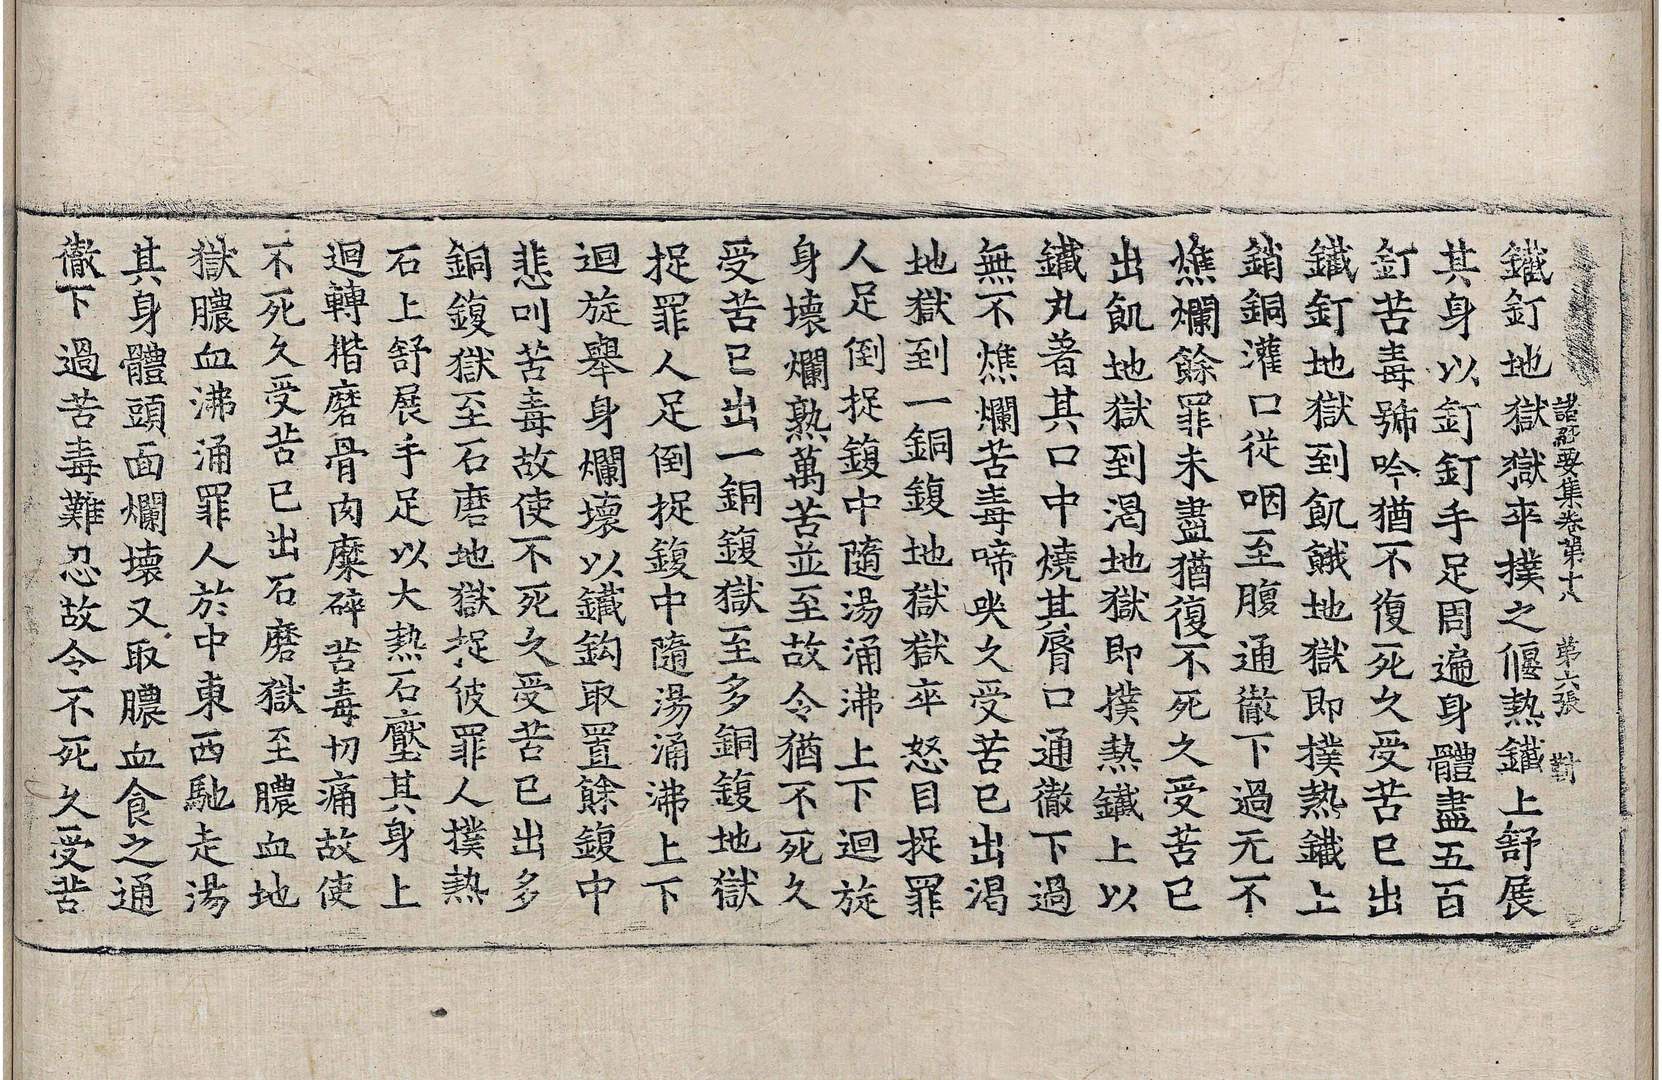 諸經要集卷第十八　第六張　對
鐵釘地獄獄卒撲之偃熱鐵上舒展
其身以釘釘手足周遍身體盡五百
釘苦毒號吟猶不復死久受苦已出
鐵釘地獄到飢餓地獄即撲熱鐵上
銷銅灌口從咽至腹通徹下過无不
燋爛餘罪未盡猶復不死久受苦已
出飢地獄到渴地獄即撲熱鐵上以
鐵丸著其口中燒其脣口通徹下過
無不燋爛苦毒啼哭久受苦已出渴
地獄到一銅鍑地獄獄卒怒目捉罪
人足倒捉鍑中隨湯涌沸上下迴旋
身壞爛熟萬苦並至故令猶不死久
受苦已出一銅鍑獄至多銅鍑地獄
捉罪人足倒捉鍑中隨湯涌沸上下
迴旋舉身爛壞以鐵鈎取置餘鍑中
悲叫苦毒故使不死久受苦已出多
銅鍑獄至石磨地獄捉彼罪人撲熱
石上舒展手足以大熱石壓其身上
迴轉揩磨骨肉糜碎苦毒切痛故使
不死久受苦已出石磨獄至膿血地
獄膿血沸涌罪人於中東西馳走湯
其身體頭面爛壞又取膿血食之通
徹下過苦毒難忍故令不死久受苦